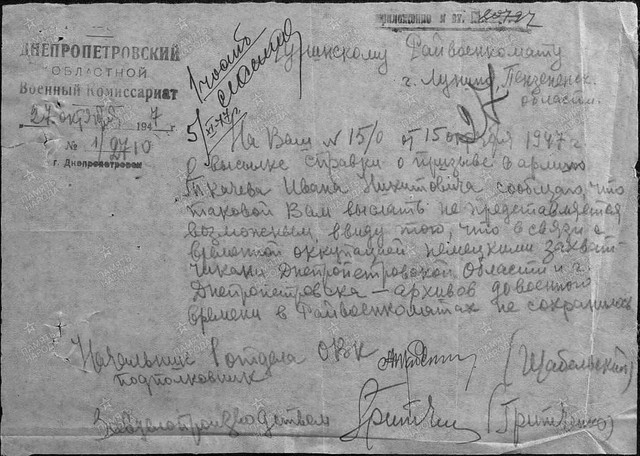 Приложение к вх. № 20797
ДНЕПРОПЕТРОВСКИЙ
ОБЛАСТНОЙ
Военный Комиссариат
27 октября 1947 г.
№ 1/02710
г. Днепропетровск
1 часть
5/XI-47г
Лунинскому Райвоенкомату
г. Лунино, Пензенск.
области.
На Ваш № 1510 от 15 октября 1947 г
о высылке справки о призыве в армию
Ткачева Ивана Никитовича сообщаю, что
таковой Вам выслать не представляется
возможным, ввиду того, что в связи с
временной оккупацией немецкими захват-
чиками Днепропетровской Области и г.
Днепропетровска — архивов довоенного
времени в Райвоенкоматах не сохранилось
Начальник 1 отдела ОВК
подполковник (Шабельский)
Завделопроизводством (Гритченко)